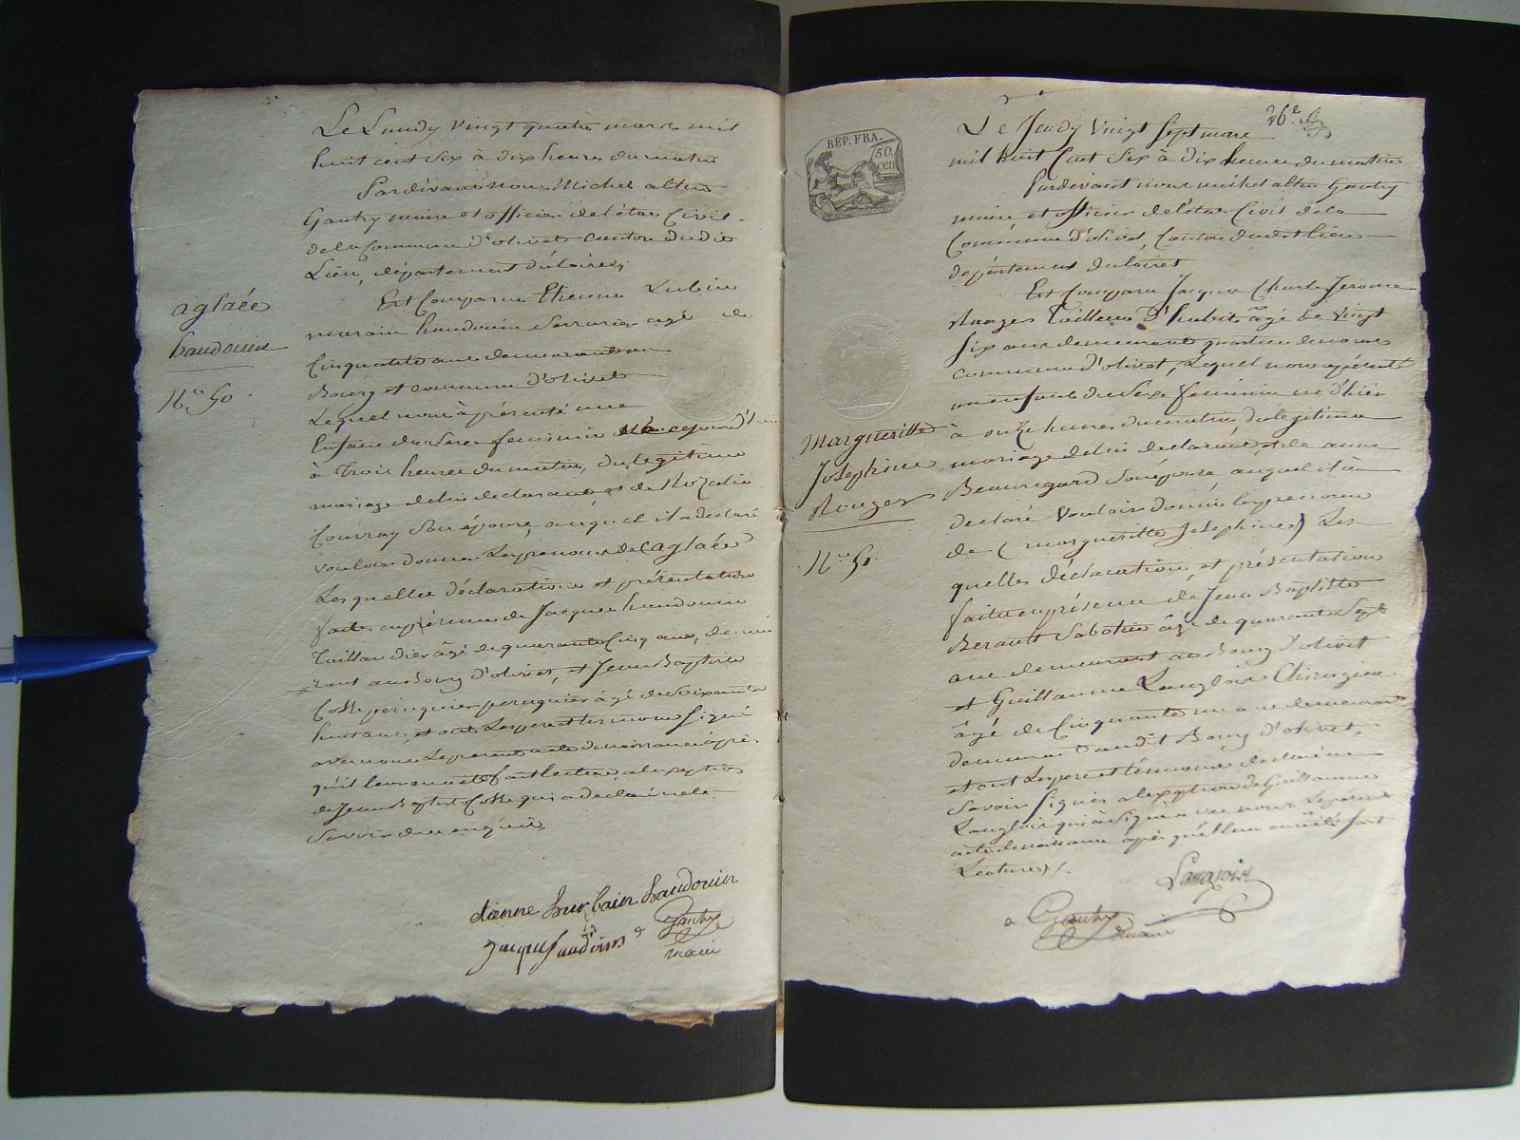 Le Lundy vingt quatre mars mil
huit cent six à dix heures du matin
Pardevant nous Michel
Gautry maire et officier de l'état Civil
de la Commune d'olivet canton dudit
Lieu, département du loiret
Est Comparu Etienne
haudouin Serrurier agé de
Cinquante ans demeurant au
Bourg et commune d'olivet
Lequel nous à présenté une
Enfant du Sexe feminin cejourd'hui
à trois heures du matin, du légitime
mariage de lui déclarant et de Rozalie
Couvray Son épouse, auquel il a déclaré
vouloir donner Les prenoms de aglaée
Lesquelles déclaration et présentation
faites en présence de Jacques haudouin
taillandier âgé de quarante Cinq ans, demeu
rant au bourg d'olivet, et Jean Baptiste
perruquier âgé de Soixante
huit ans, et ont Les pere et temoins Signé
avec nous Le present acte de naissance après
qu'il leur en a été fait lecture, a l'exception
de Jean Baptiste qui a declaré ne le
Savoir de ce enquis
aglaée
haudouin
N.º 50
etienne haudouin
Jacques haudouin
Gautry
maire
REP. FRA.
50
cen
26.e
Le Jeudy Vingt Sept mars
mil huit Cent Six à dix heures du matin
Pardevant nous michel Gautry
maire et officier de l'état Civil de la
Commune d'olivet, Canton dudit lieu
département du loiret
Est Comparu Jacques Charles Jerome
Rouzes Tailleur d'habits âgé de Vingt
Six ans demeurant
commune d'olivet, Lequel nous a présenté
un enfant du Sexe feminin né d'hier
à onze heures du matin, du légitime
mariage de lui declarant, et de anne
Beauregard Son épouse, auquel il a
declaré Vouloir donner les prenoms
de (margueritte Josephine) Les-
quelles déclaration, et présentation
faite en présence de Jean Baptiste
Berault Sabotier âgé de quarante Sept
ans demeurant au Bourg d'olivet
et Guillaume Langlois Chirurgien
âgé de Cinquante un ans demeurant
audit Bourg d'olivet,
et ont Les pere et témoins declaré ne
Savoir Signer a l'exception de Guillaume
Langlois qui a Signé avec nous Le présent
acte de naissance après qu'il leur en a été fait
Lecture
Marguerittte
Josephine
Rouzes
N.º 51
Langlois
Gautry
maire